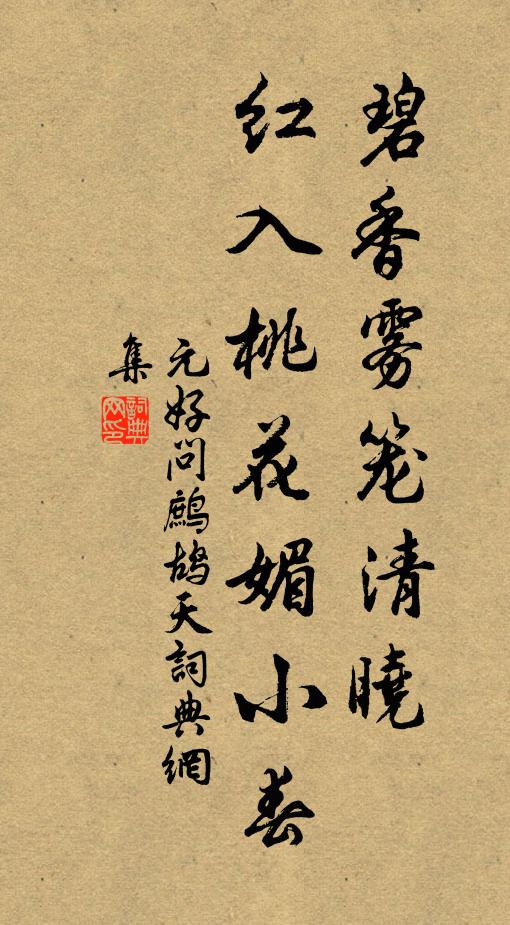 碧香雾笼清晓
红入桃花媚小春
元好问鹧鸪天詞典網
集
詞典网印